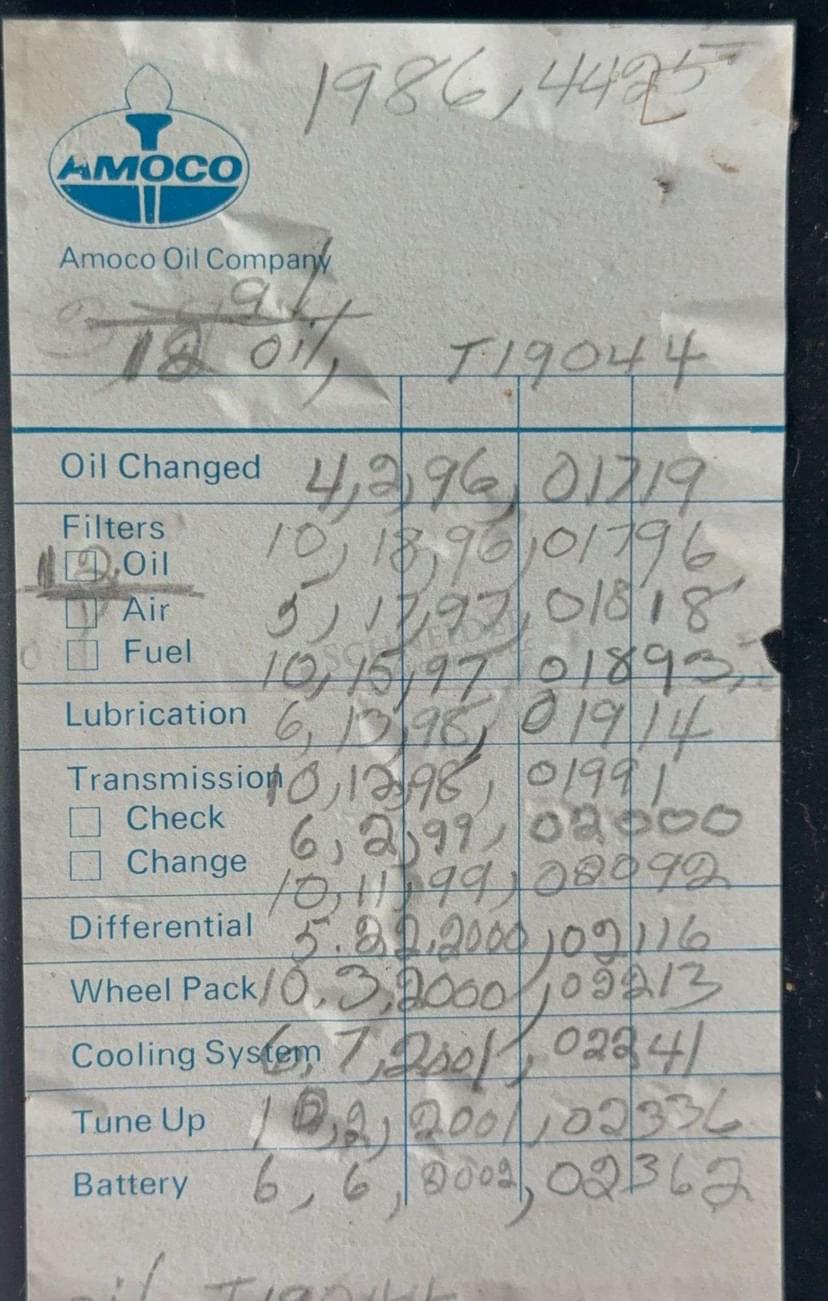 1986, 4425
AMOCO
Amoco Oil Company
12 Oil, T19044
Oil Changed 4, 2, 96, 01719
Filters 10, 18, 96, 01796
12, Oil
Air 5, 17, 97, 01818
Fuel 10, 15, 97 01893,
Lubrication 6, 13, 98, 01914
Transmission 10, 12, 98, 01991
Check 6, 2, 99, 02000
Change 10, 11, 99, 02092
Differential 5.22,2000, 02116
Wheel Pack 10.3,2000, 02213
Cooling System 6, 7, 2001, 02241
Tune Up 10, 2, 2001, 02336
Battery 6, 6, 2002, 02362